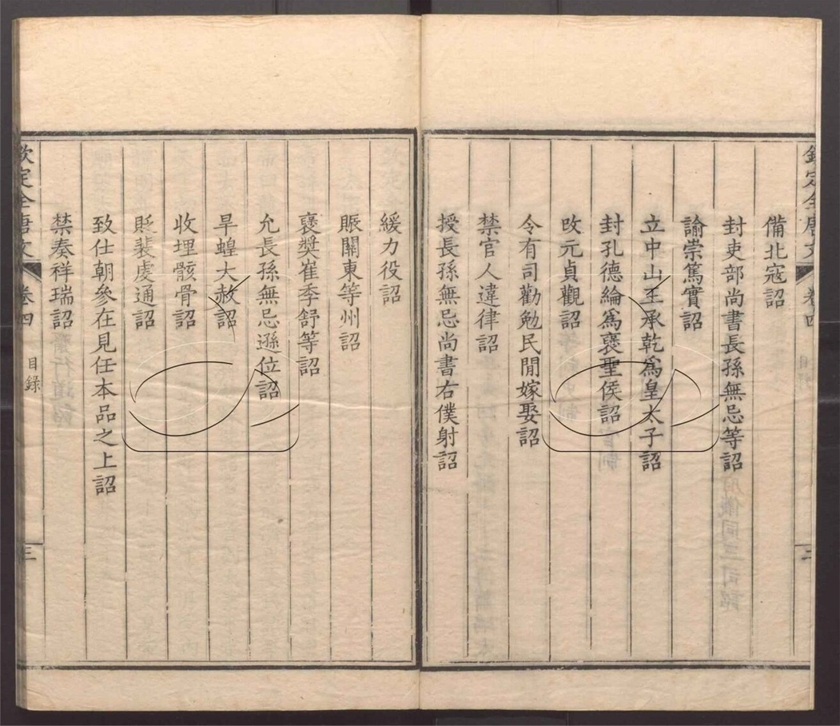 欽定全唐文
卷四
目錄
二
備北寇詔
封吏部尚書長孫無忌等詔
諭崇篤實詔
立中山王承乾爲皇太子詔
封孔德綸爲襃聖侯詔
改元貞觀詔
令有司勸勉民閒嫁娶詔
禁官人違律詔
授長孫無忌尚書右僕射詔
緩力役詔
賑關東等州詔
襃奬崔季舒等詔
允長孫無忌遜位詔
旱蝗大赦詔
收埋骸骨詔
貶裴虔通詔
致仕朝參在見任本品之上詔
禁奏祥瑞詔
欽定全唐文
卷四
目錄
三